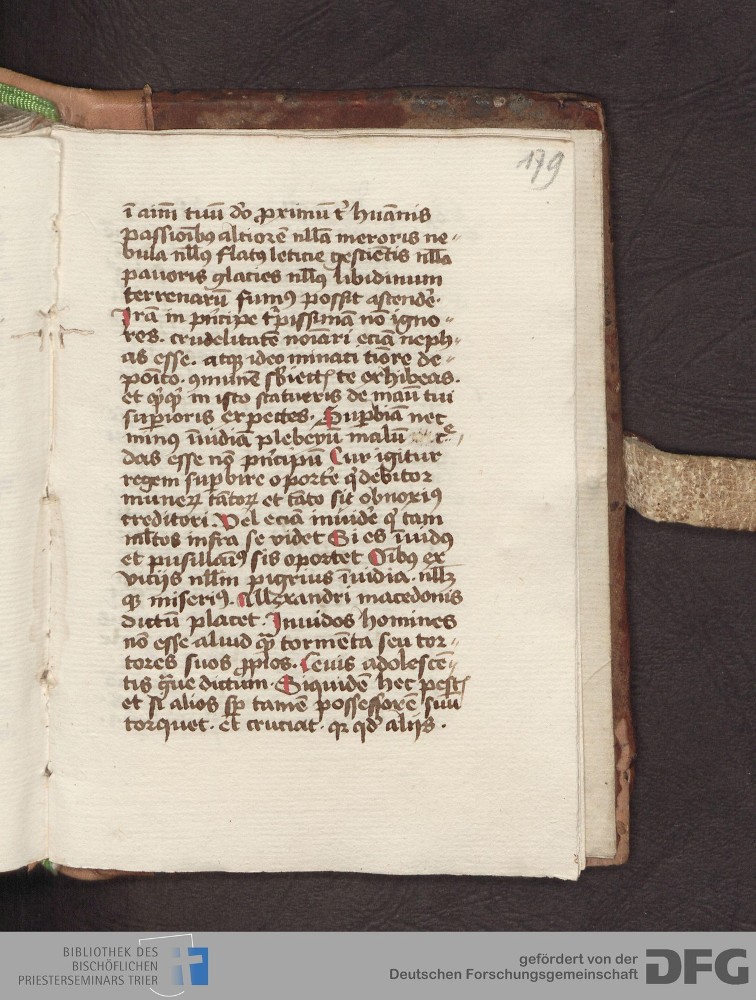 179
ī aīm tuū do proximū et huānis
passioibus altiorē nllā meroris ne-
bula nllus flatus leticie gestiētis nlla
pauoris glacies nllus libidinum
terrenarū fumus possit ascendē.
Irā in pncipe turpissimā nō igno-
res. crudelitatē noiari eciā neph-
as esse. atque ideo minati tiore de-
poito. communē sbiectis te exhibeas.
et quicquid in isto statueris de manu tui
superioris expectes. Superbiā nec
minus inuidiā plebeyū malū
das esse nō pncipū Cur igitur
regem supbire oportet qui debitor
munerum tātorum et tāto sit obnoxius
creditori. Vel eciā inuidē qui tam
mltos infra se videt Si es inuidus
et pusillanius sis oportet Oibus ex
vicijs nllm pigrius inuidia. nllumque
miserius. Allexandri macedonis
dictū placet. Inuidos homines
nō esse aliud quam tormēta seu tor-
tores suos proprios. Leuis adolescē-
tis graue dictum. Siquidē hec pestis
et si alios semper tamē possessorē suū
torquet. et cruciat. quia quod alijs.
BIBLIOTHEK DES
BISCHÖFLICHEN
PRIESTERSEMINARS TRIER
gefördert von der
Deutschen Forschungsgemeinschaft
DFG